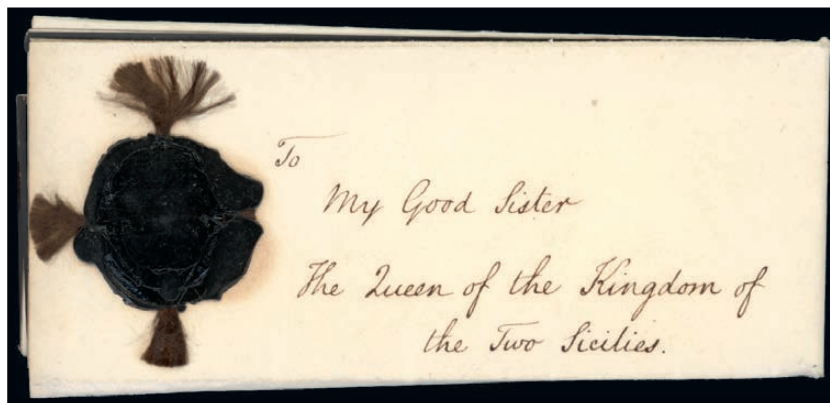 To
My Good Sister
The Queen of the Kingdom of
the Two Sicilies.